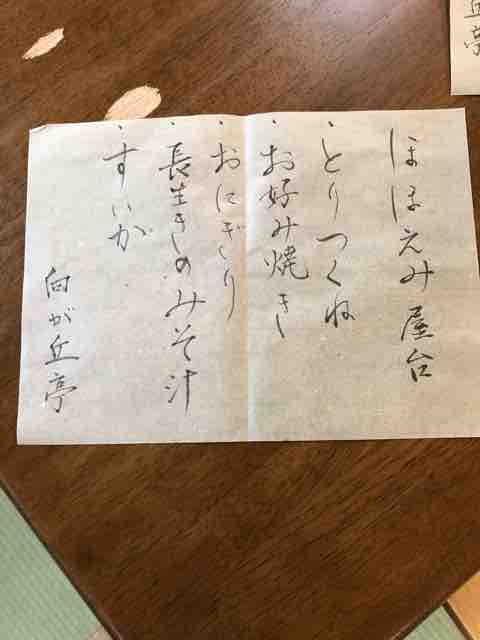 ほほえみ屋台
・とりつくね
・お好み焼き
・おにぎり
・長生きのみそ汁
・すいか
向が丘亭
丘亭